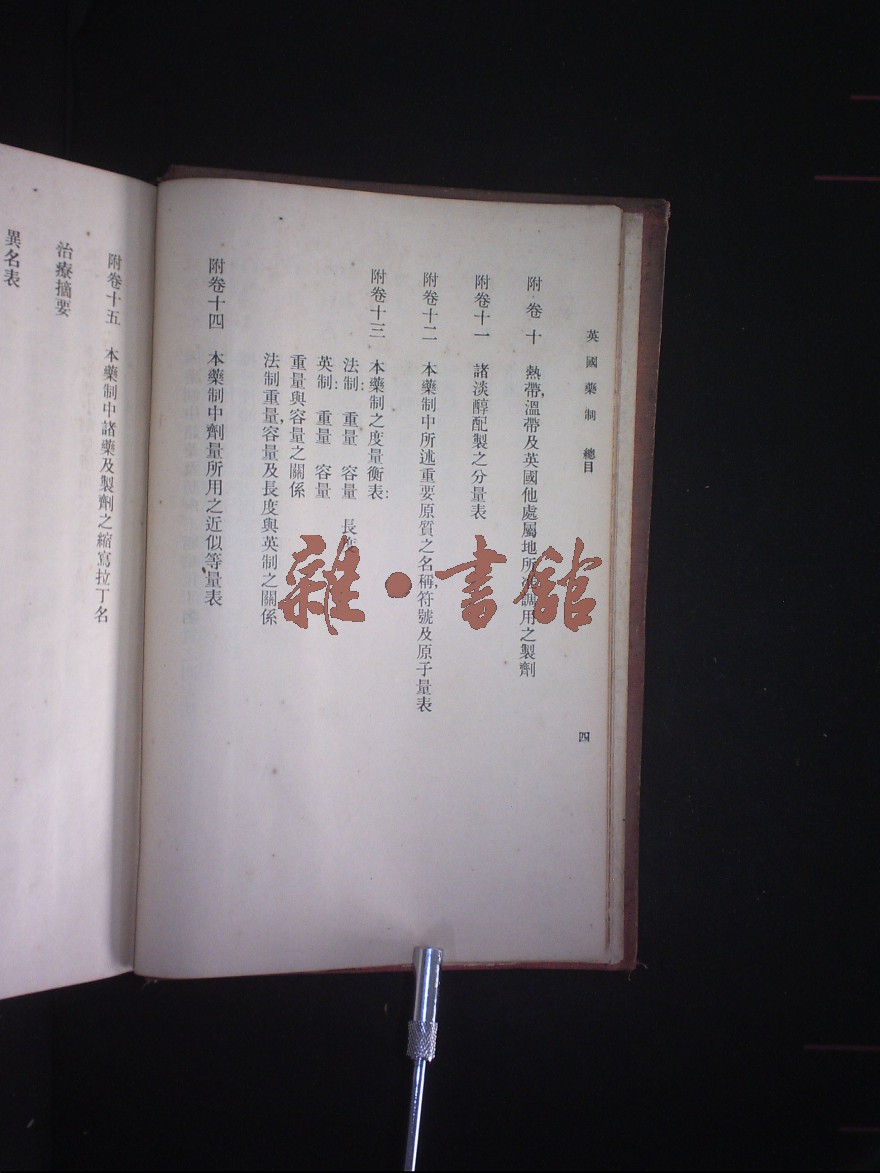 英國藥制 總目
四
附卷十 熱帶,溫帶及英國他處屬地所用之製劑
附卷十一 諸淡醇配製之分量表
附卷十二 本藥制中所述重要原質之名稱,符號及原子量表
附卷十三 本藥制之度量衡表:
法制: 重量 容量 長度
英制: 重量 容量
重量與容量之關係
法制重量,容量及長度與英制之關係
附卷十四 本藥制中劑量所用之近似等量表
附卷十五 本藥制中諸藥及製劑之縮寫拉丁名
治療摘要
異名表
雜·書館